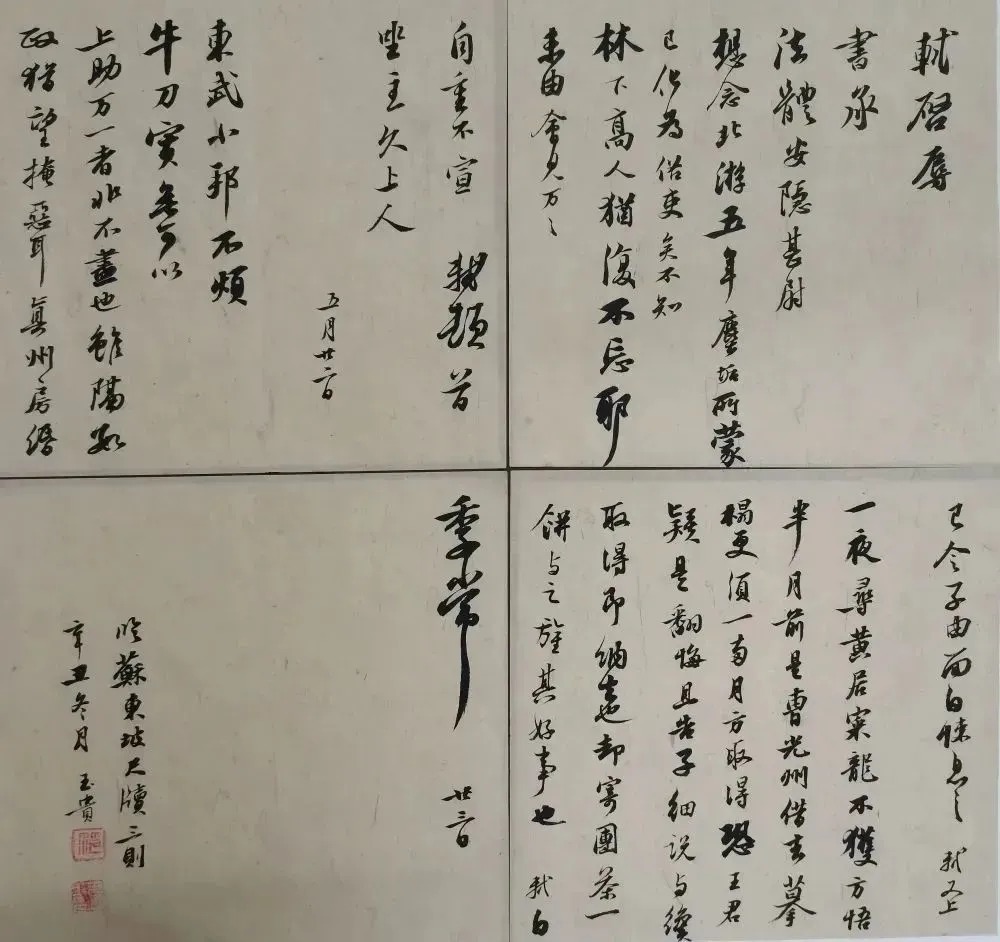 軾啓辱
書承
法體安隱甚尉
想念北游五年塵垢所蒙
已化為俗吏矣不知
林下高人猶復不忘耶
未由會見万々
自重不宣 軾頓首
坐主久上人
五月廿二日
東武小邦不煩
牛刀實無可以
上助万一者非不盡也雖隔數
政猶望掩惡耳真州房緡
已令子由面白悚息々 軾又上
一夜尋黃居寀龍不獲方悟
半月前是曹光州借去摹
榻更須一兩月方取得恐王君
疑是翻悔且告子細說与纔
取得即納去也却寄團茶一
餅与之旌其好事也 軾白
季常 廿三日
臨蘇東坡尺牘三則
辛丑冬月 玉貴